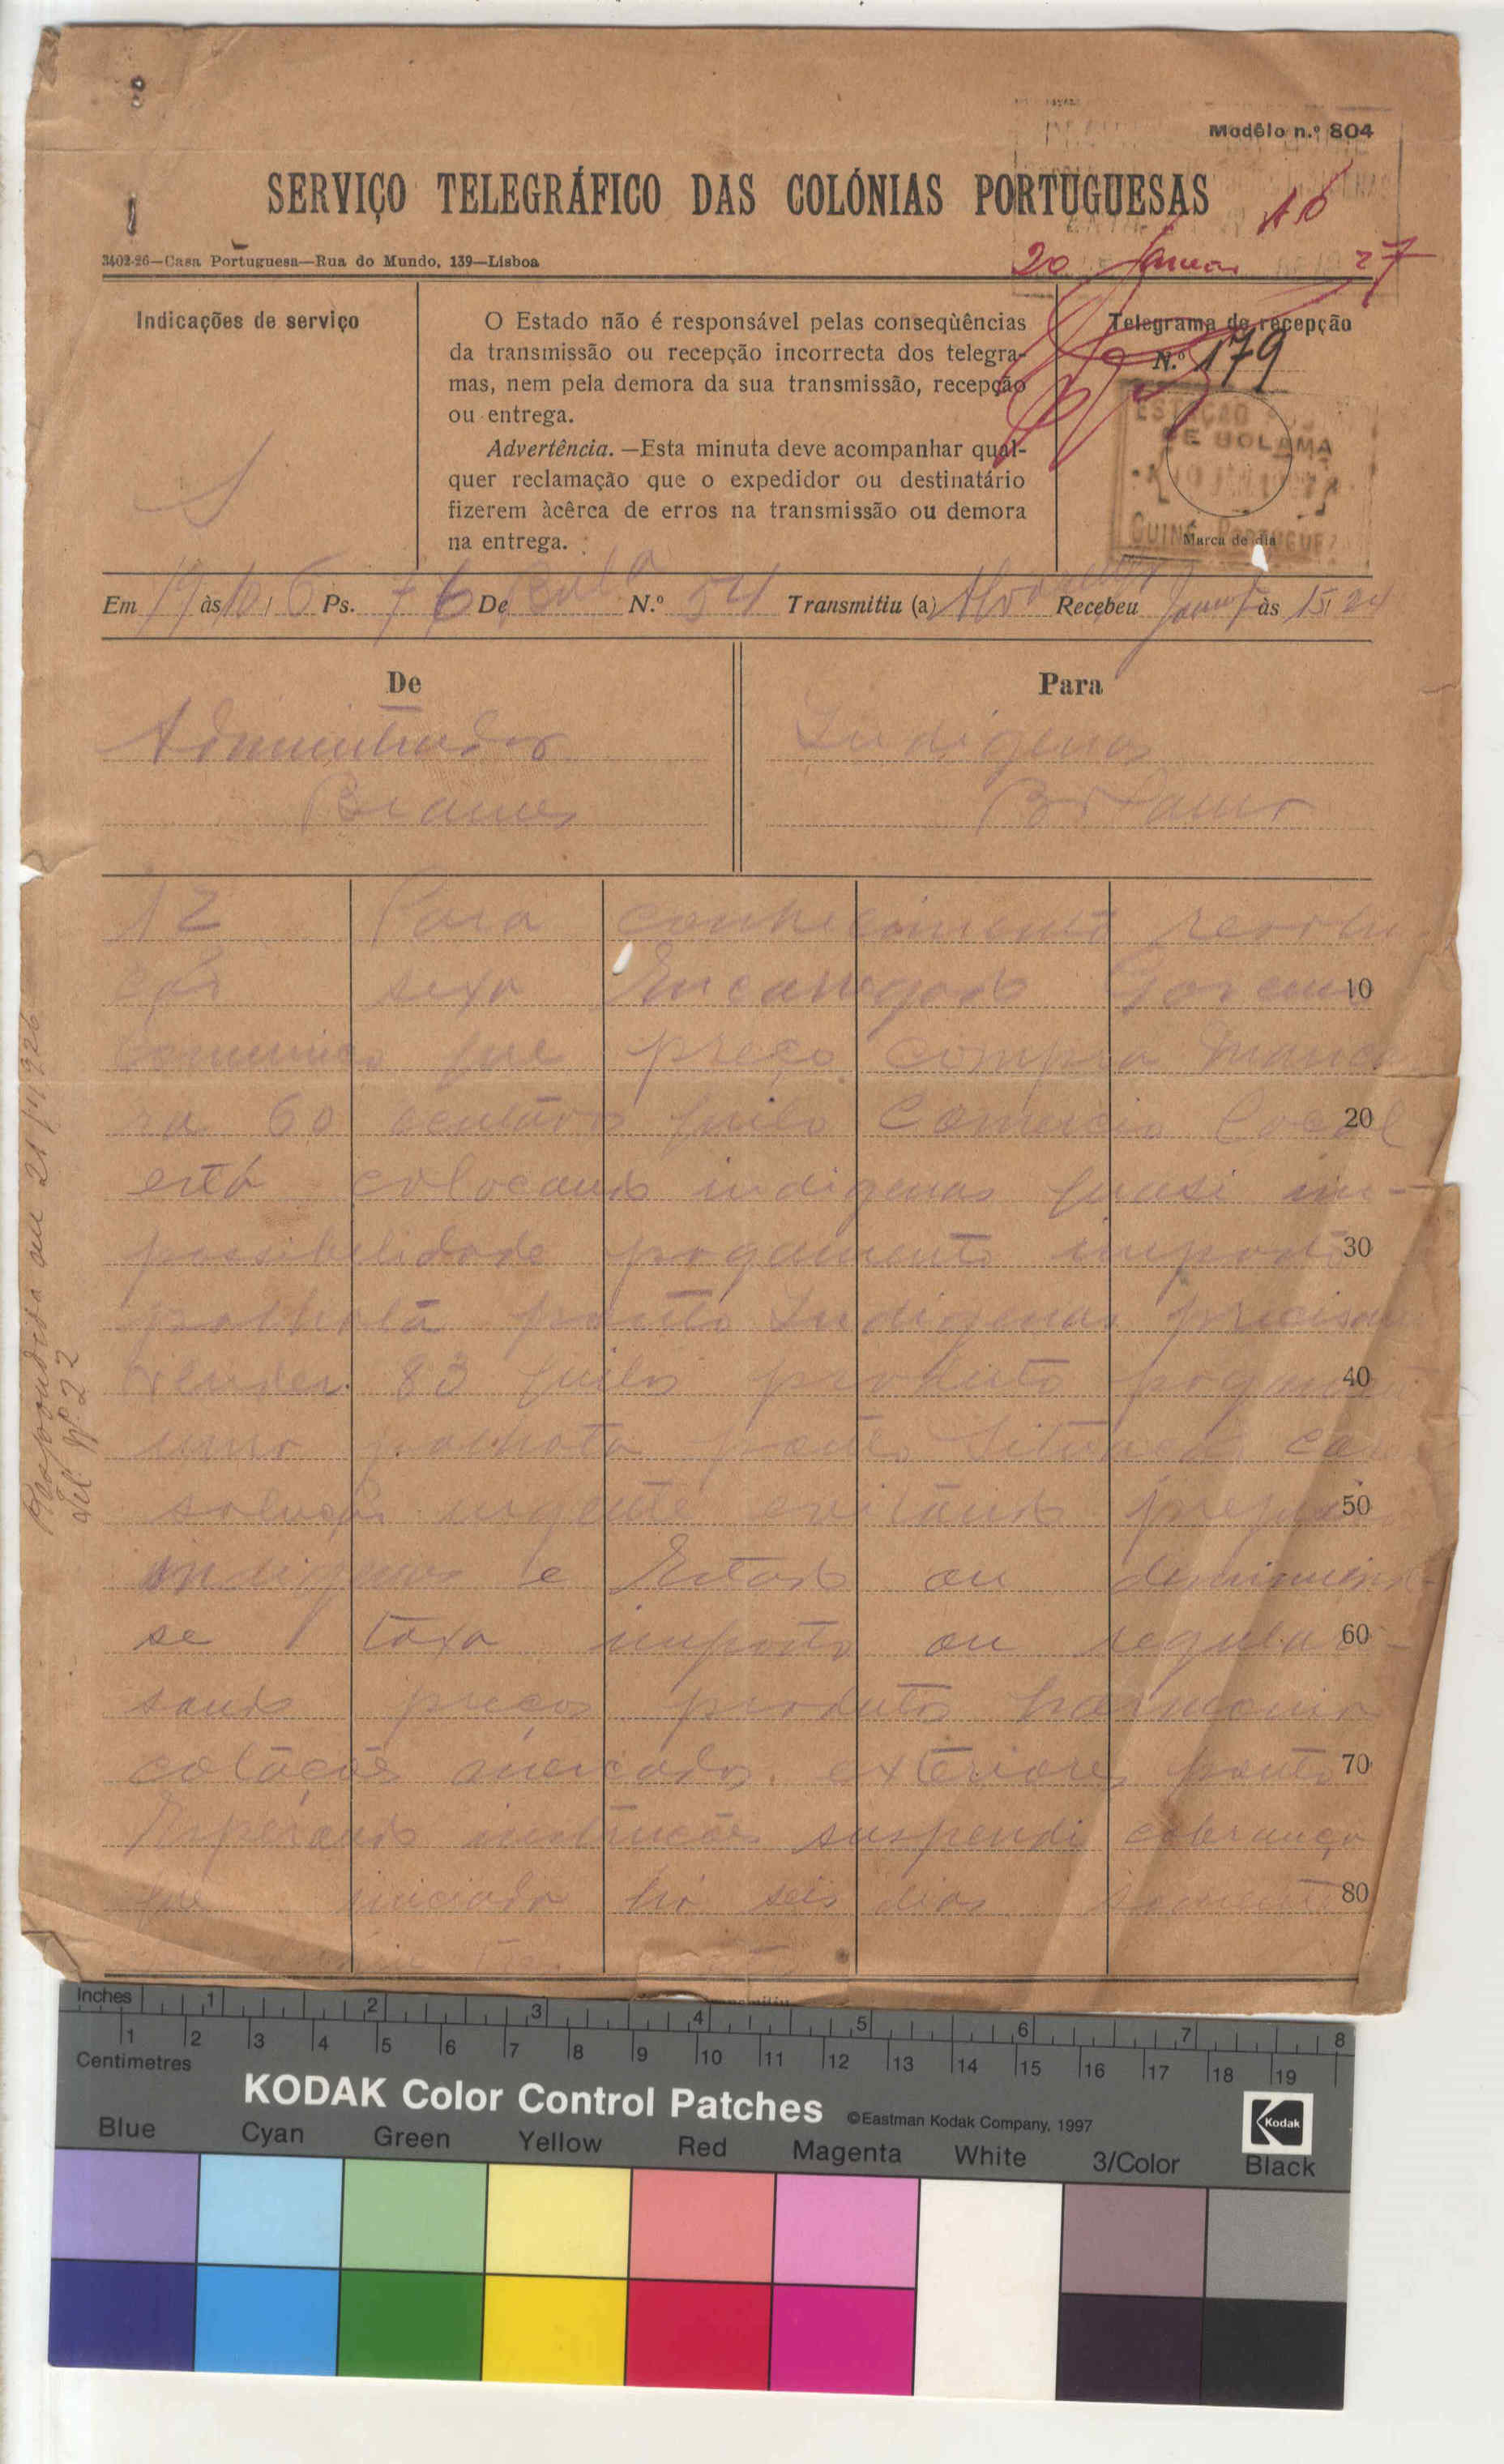 Modêlo n.º 804
SERVIÇO TELEGRÁFICO DAS COLÓNIAS PORTUGUESAS
16
20 Janeiro 27
3402-26—Casa Portuguesa—Rua do Mundo, 139—Lisboa
Indicações de serviço
S
O Estado não é responsável pelas conseqùências
da transmissão ou recepção incorrecta dos telegra-
mas, nem pela demora da sua transmissão, recepção
ou entrega.
Advertência.—Esta minuta deve acompanhar qual-
quer reclamação que o expedidor ou destinatário
fizerem àcêrca de erros na transmissão ou demora
na entrega.
Telegrama de recepção
N.º 179
ESTAÇÃO
DE BOLAMA
GUINÉ PORTUGUEZA
Marca de dia
Em 19 às 10,6 Ps. 76 De N.º 54 Transmitiu (a) Recebeu às 15,24
De
Para
Administrador
Indigenas
Brames
Bolama
12 Para conhecimento resolu
ção sexa Encarregado Governo 10
comunico que preço compra manca
ra 60 centavos quilo Comercio local 20
está colocando indigenas quasi im-
possibilidade pagamento imposto 30
palhota ponto Indigenas precisam
vender 83 quilos produto pagamento 40
uma palhota ponto Situação
solução urgente evitando 50
indigenas e Estado ou deminuindo-
se taxa imposto ou regulari- 60
sando preços produtos harmonia
cotações mercados exteriores ponto 70
Esperando instruções suspendi cobrança
que iniciada há seis dias somente 80
Respondida em 21/1/926
Tel. Nº 22
Inches 1 2 3 4 5 6 7 8
Centimetres 1 2 3 4 5 6 7 8 9 10 11 12 13 14 15 16 17 18 19
KODAK Color Control Patches ©Eastman Kodak Company, 1997 Kodak
Blue Cyan Green Yellow Red Magenta White 3/Color Black